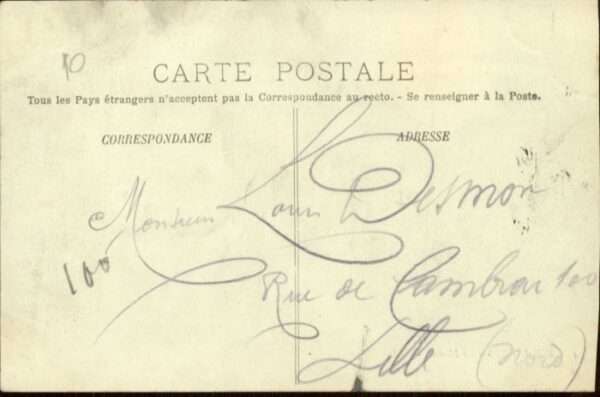 10
CARTE POSTALE
Tous les Pays étrangers n'acceptent pas la Correspondance au recto. - Se renseigner à la Poste.
CORRESPONDANCE
ADRESSE
Monsieur Louis Desmon
100
Rue de Cambrai 100
Lille (Nord)